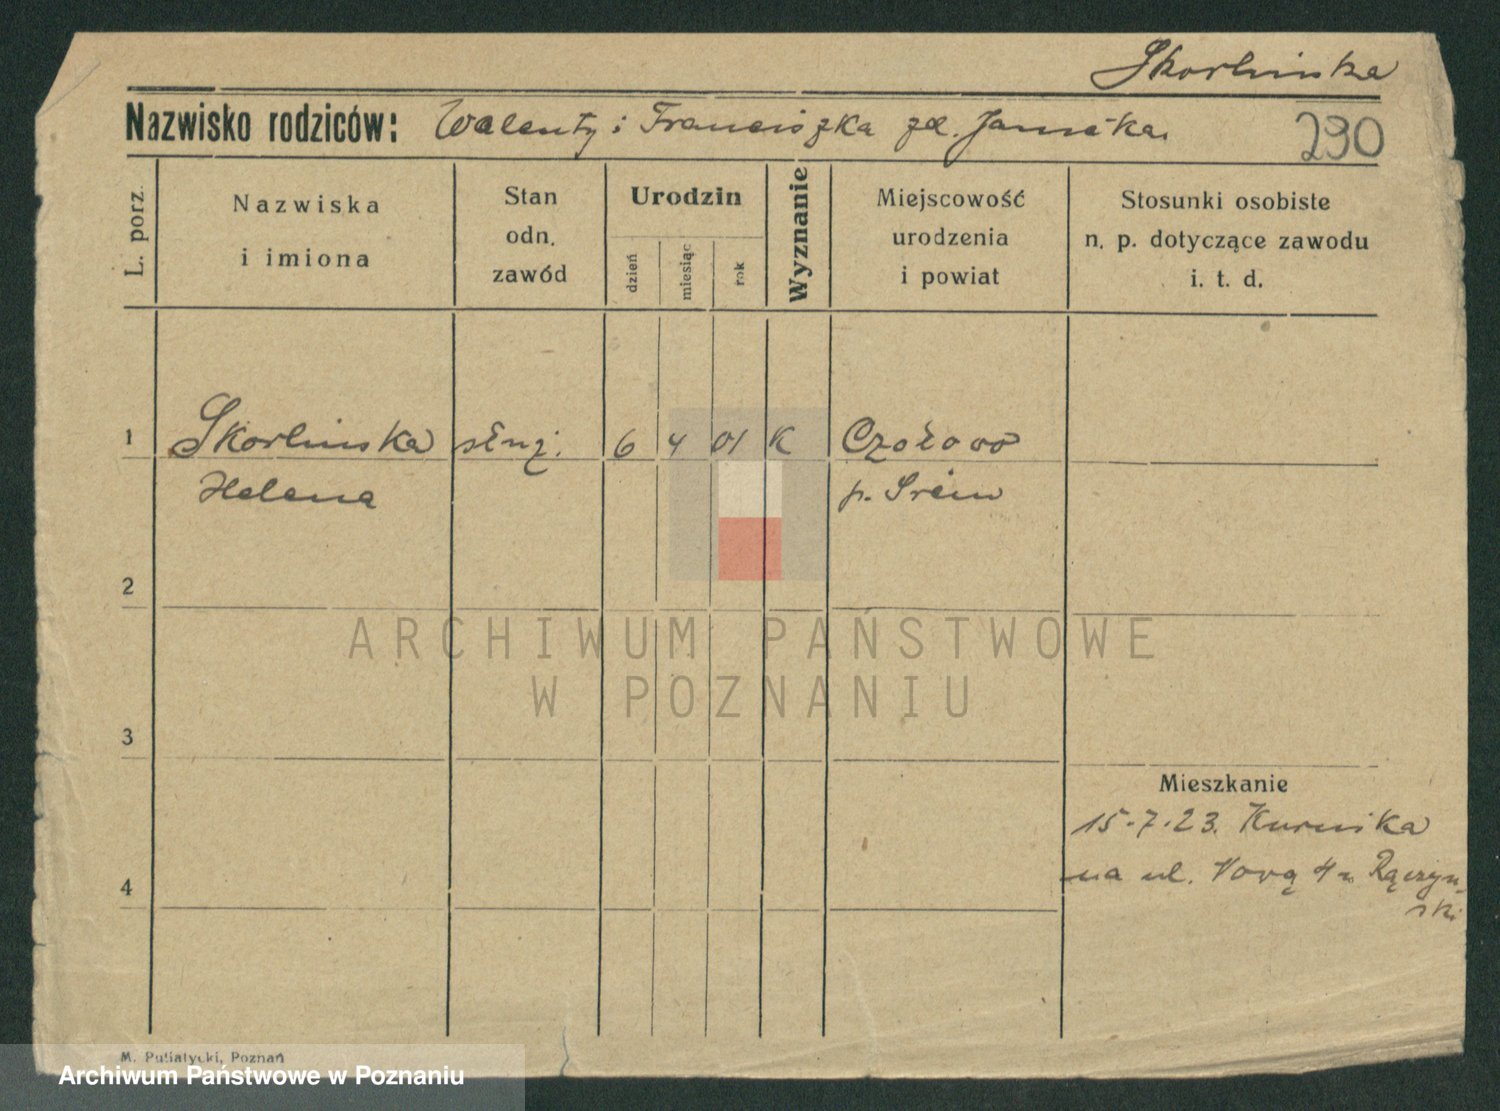 Skorlinska
Nazwisko rodziców: Walenty i Franciszka zd.
290
L. porz.
Nazwiska
i imiona
Stan
odn.
zawód
Urodzin
dzień
miesiąc
rok
Wyznanie
Miejscowość
urodzenia
i powiat
Stosunki osobiste
n. p. dotyczące zawodu
i. t. d.
1 Skorlinska służ. 6 4 01 K Czołowo
Helena p. Śrem
2
3
4
Mieszkanie
15.7.23. Kurnika
na ul. 4 Rączyn-
ski
ARCHIWUM PAŃSTWOWE
W POZNANIU
M. Putiatycki, Poznań
Archiwum Państwowe w Poznaniu